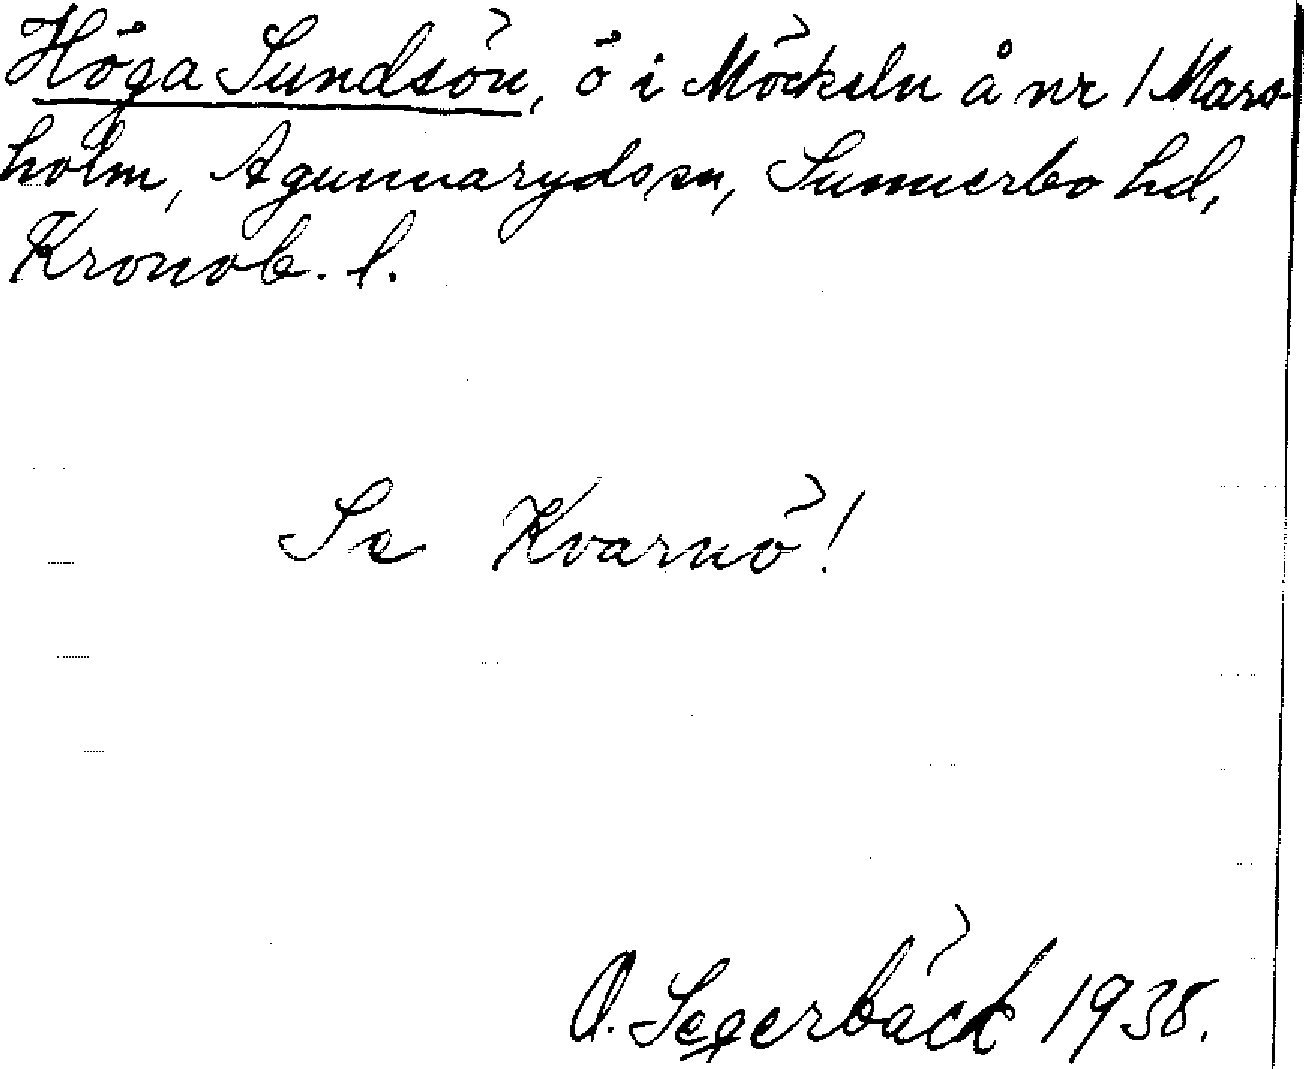 Höga Sundsön, ö i Möckeln å nr 1 Mars-
holm, Agunnarydssn, Sunnerbo hd,
Kronob. l.
Se Kvarnö!
O. Segerbäck 1938.